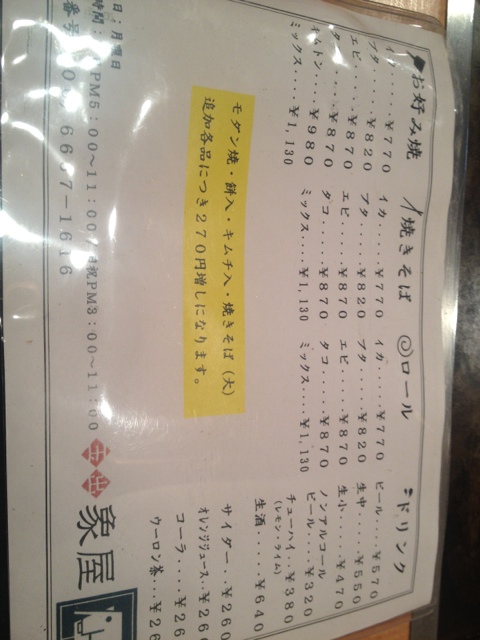 お好み焼
イカ....¥770
ブタ....¥820
エビ....¥870
タコ....¥870
キムトン....¥980
ミックス....¥1,130
焼きそば
イカ.....¥770
ブタ.....¥820
エビ.....¥870
タコ.....¥870
ミックス....¥1,130
ロール
イカ.....¥770
ブタ.....¥820
エビ.....¥870
タコ.....¥870
ミックス....¥1,130
ドリンク
ビール....¥570
生中....¥550
生小....¥470
ノンアルコール
ビール....¥320
チューハイ..¥380
(レモン・ライム)
生酒.....¥640
サイダー...¥260
オレンジジュース..¥260
コーラ....¥26
ウーロン茶...¥26
モダン焼・餅入・キムチ入・焼きそば(大)
追加各品につき270円増しになります。
日:月曜日
時間:PM5:00〜11:00 日祝PM3:00〜11:00
番号 6657-1616
象屋